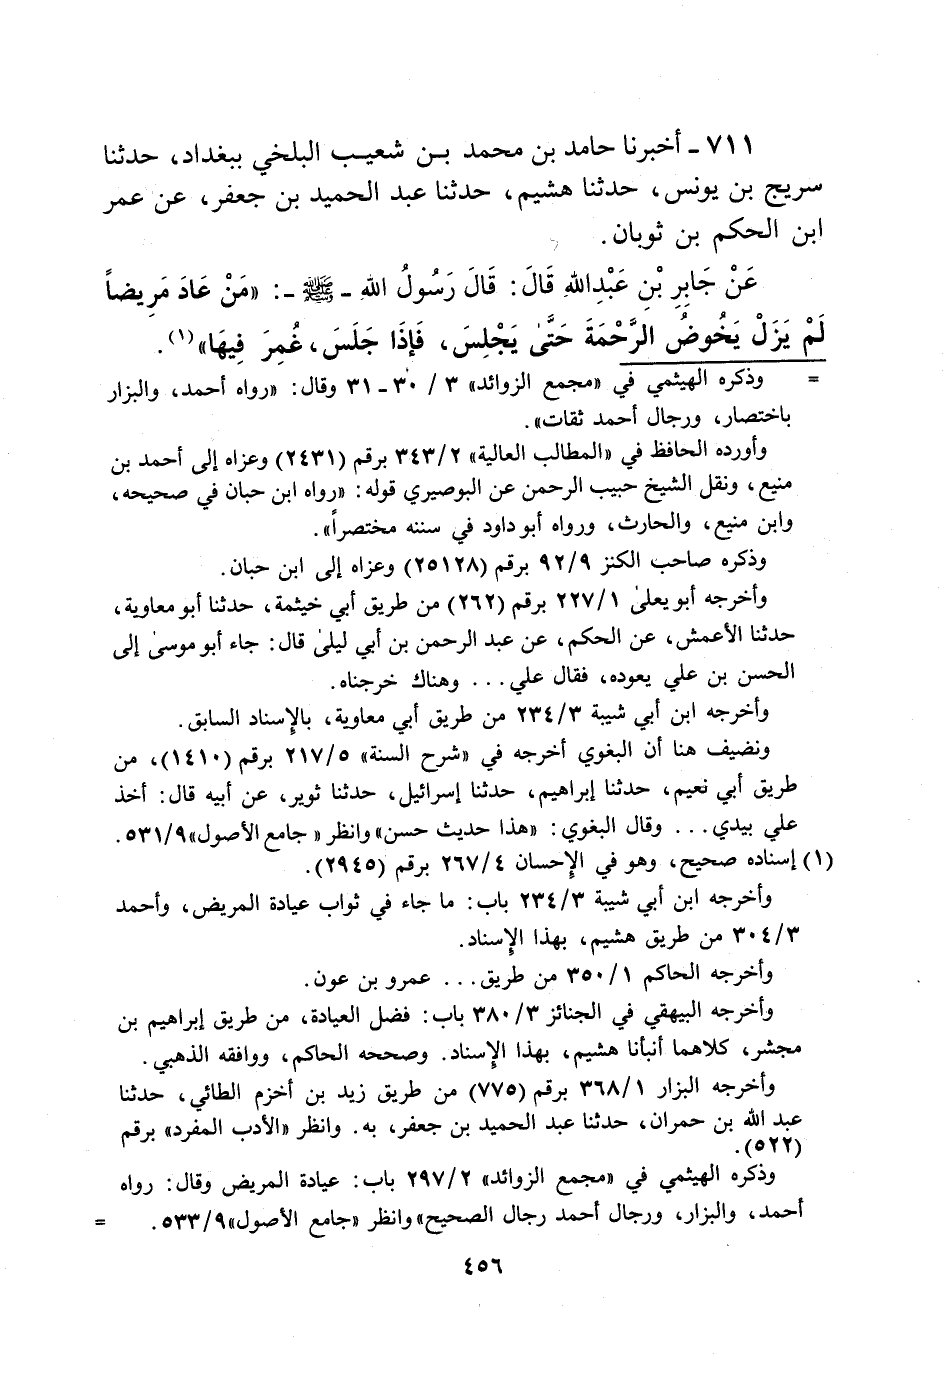 ٧١١ ـ أخبرنا حامد بن محمد بـن شعيـب البلخي ببغداد، حدثنا
سريج بن يونس، حدثنا هشيم، حدثنا عبد الحميد بن جعفر، عن عمر
ابن الحكم بن ثوبان.
عَنْ جَابِرِ بْنِ عَبْدِاللهِ قَالَ: قَالَ رَسُولُ اللهِ ـ ﷺ ـ: «مَنْ عَادَ مَرِيضاً
لَمْ يَزَلْ يَخُوضُ الرَّحْمَةَ حَتَّىٰ يَجْلِسَ، فَإِذَا جَلَسَ، غُمِرَ فِيهَا»(١).
= وذكره الهيثمي في «مجمع الزوائد» ٣ / ٣٠ ـ ٣١ وقال: «رواه أحمد، والبزار
باختصار، ورجال أحمد ثقات».
وأورده الحافظ في «المطالب العالية» ٣٤٣/٢ برقم (٢٤٣١) وعزاه إلى أحمد بن
منيع، ونقل الشيخ حبيب الرحمن عن البوصيري قوله: «رواه ابن حبان في صحيحه،
وابن منيع، والحارث، ورواه أبو داود في سننه مختصراً».
وذكره صاحب الكنز ٩٢/٩ برقم (٢٥١٢٨) وعزاه إلى ابن حبان.
وأخرجه أبو يعلىٰ ٢٢٧/١ برقم (٢٦٢) من طريق أبي خيثمة، حدثنا أبو معاوية،
حدثنا الأعمش، عن الحكم، عن عبد الرحمن بن أبي ليلىٰ قال: جاء أبو موسىٰ إلى
الحسن بن علي يعوده، فقال علي... وهناك خرجناه.
وأخرجه ابن أبي شيبة ٢٣٤/٣ من طريق أبي معاوية، بالإسناد السابق.
ونضيف هنا أن البغوي أخرجه في «شرح السنة» ٢١٧/٥ برقم (١٤١٠)، من
طريق أبي نعيم، حدثنا إبراهيم، حدثنا إسرائيل، حدثنا ثوير، عن أبيه قال: أخذ
علي بيدي... وقال البغوي: «هذا حديث حسن» وانظر «جامع الأصول» ٥٣١/٩.
(١) إسناده صحيح، وهو في الإحسان ٢٦٧/٤ برقم (٢٩٤٥).
وأخرجه ابن أبي شيبة ٢٣٤/٣ باب: ما جاء في ثواب عيادة المريض، وأحمد
٣٠٤/٣ من طريق هشيم، بهذا الإسناد.
وأخرجه الحاكم ٣٥٠/١ من طريق... عمرو بن عون.
وأخرجه البيهقي في الجنائز ٣٨٠/٣ باب: فضل العيادة، من طريق إبراهيم بن
مجشر، كلاهما أنبأنا هشيم، بهذا الإسناد. وصححه الحاكم، ووافقه الذهبي.
وأخرجه البزار ٣٦٨/١ برقم (٧٧٥) من طريق زيد بن أخزم الطائي، حدثنا
عبد الله بن حمران، حدثنا عبد الحميد بن جعفر، به. وانظر «الأدب المفرد» برقم
(٥٢٢).
وذكره الهيثمي في «مجمع الزوائد» ٢٩٧/٢ باب: عيادة المريض وقال: رواه
أحمد، والبزار، ورجال أحمد رجال الصحيح» وانظر «جامع الأصول» ٥٣٣/٩. =
٤٥٦